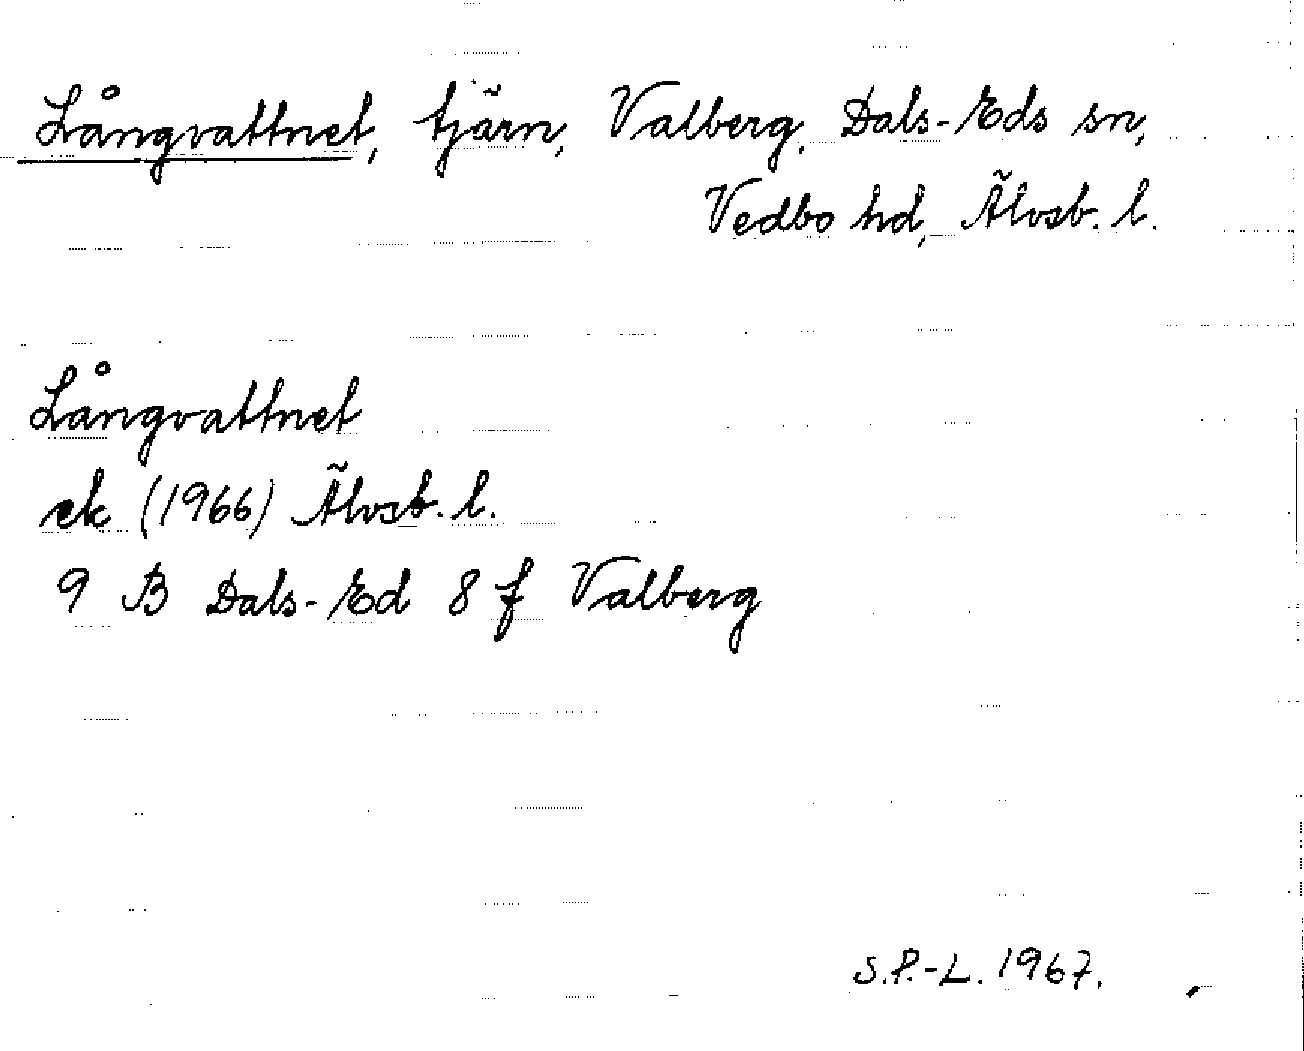 Långvattnet, tjärn, Valberg, Dals-Eds sn,
Vedbo hd, Älvsb. l.
Långvattnet
ek (1966) Älvsb. l.
9 B Dals-Ed 8 f Valberg
S.P.-L. 1967.